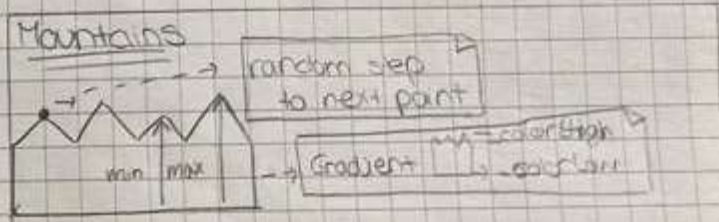 Mountains
random step
to next point
min max
Gradient colorHigh